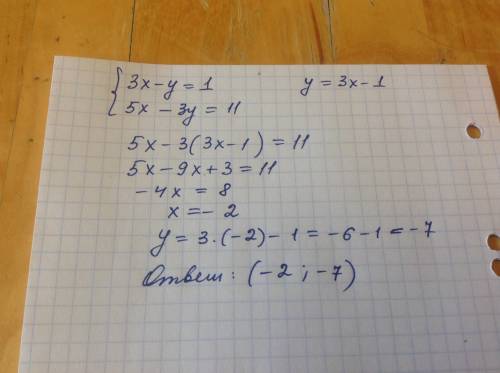 { 3x - y = 1 y = 3x - 1
5x - 3y = 11
5x - 3(3x - 1) = 11
5x - 9x + 3 = 11
- 4x = 8
x = - 2
y = 3 · (-2) - 1 = -6 - 1 = -7
Ответ: (-2 ; -7)